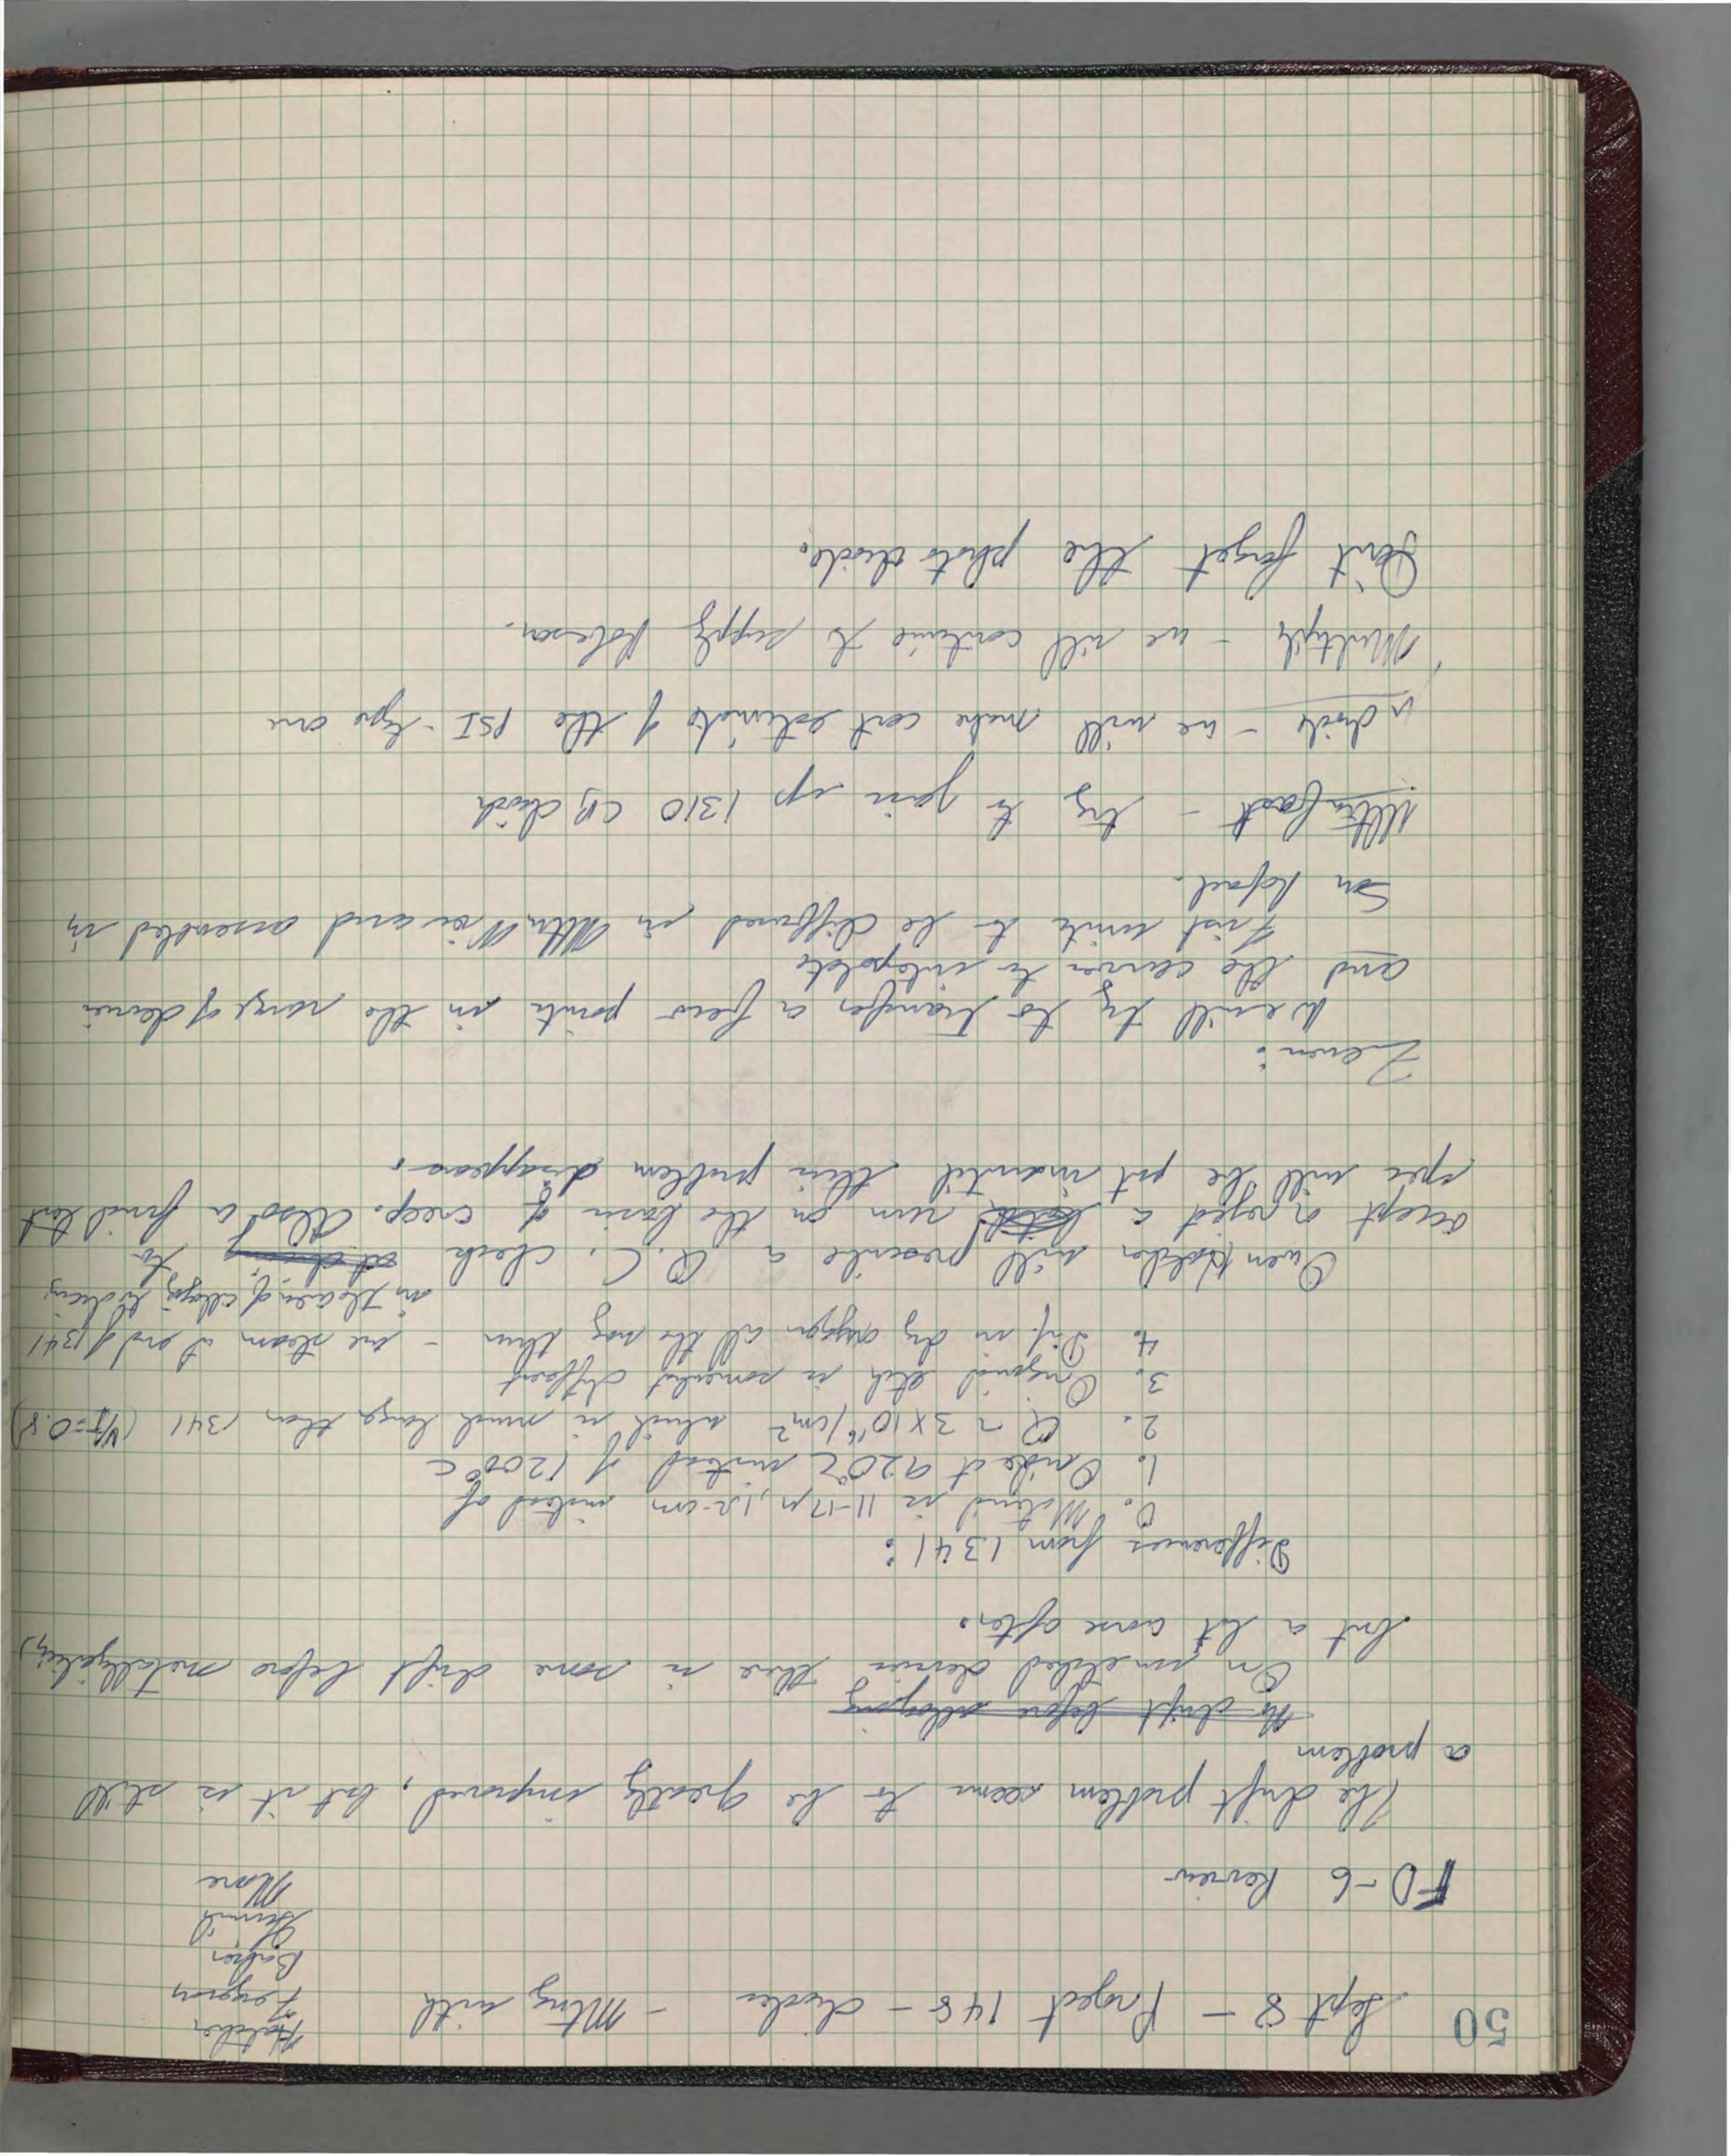 50
Sept 8 - Project 148 - diodes - Mtng with
Hatcher
Ferguson
Baker
Schmid
Moore
FD-6 Review
The drift problem seems to be greatly improved, but it is still
a problem
No drift before alloying
On unetched devices there is some drift before metallizing,
but a lot worse after.
Differences from 1341:
0. Material is 11-17μ, 1Ω-cm instead of
1. Oxide at 920°C instead of 1200°C
2. Q ~ 3x10¹⁶/cm² which is much larger than 1341 (V/I=0.8)
3. Original etch is somewhat different
4. Dif. in dry oxygen all the way thru - use steam at end of 1341
Owen Holder will prescribe a Q.C. check to
accept or reject a run on the basis of creep. Also a final test
spec will be put in until this problem disappears.
Zeners:
We will try to transfer a few points in the range of devices
and the curves to interpolate
First units to be diffused in Mtn View and assembled in
San Rafael.
Ultra fast - try to join up 1310 CB diode
μ diode - we will make cost estimate of the PSI-type one
Multiple - we will continue to supply Robeson.
Don't forget the photo diode.